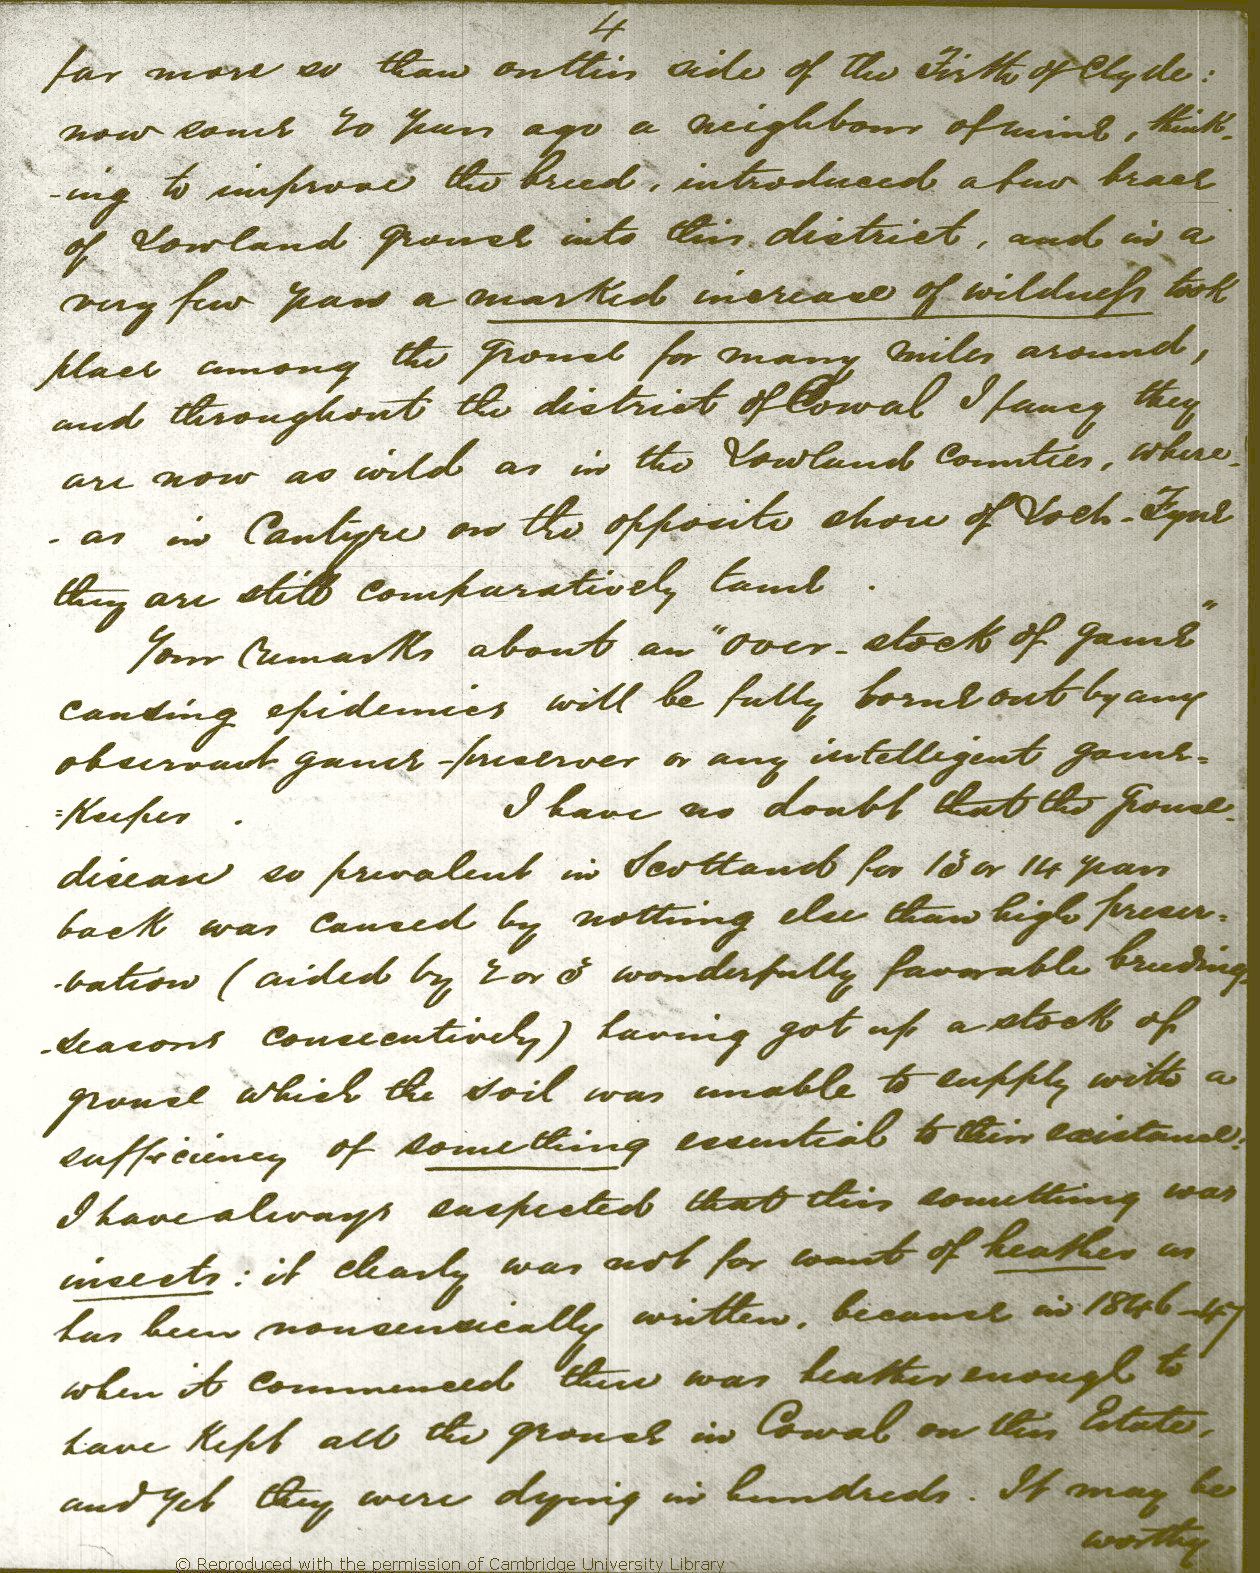 4
far more so than on this side of the Firth of Clyde:
now some 20 years ago a neighbour of mine, think-
-ing to improve the breed, introduced a few brace
of Lowland grouse into this district, and in a
very few years a marked increase of wildness took
place among the grouse for many miles around,
and throughout the district of Cowal I fancy they
are now as wild as in the Lowland Counties, where-
-as in Cantyre on the opposite shore of Loch-Fyne
they are still comparatively tame.
Your remarks about an "over-stock of game"
causing epidemics will be fully borne out by any
observant game-preserver or any intelligent game=
=Keeper. I have no doubt that the Grouse-
disease so prevalent in Scotland for 13 or 14 years
back was caused by nothing else than high preser=
-vation (aided by 2 or 3 wonderfully favorable breeding
-seasons consecutively) having got up a stock of
grouse which the soil was unable to supply with a
sufficiency of something essential to their existance:
I have always suspected that this something was
insects: it clearly was not for want of heather as
has been nonsensically written, because in 1846-47
when it commenced there was heather enough to
have Kept all the grouse in Cowal on this Estate,
and yet they were dying in hundreds. It may be
worthy
© Reproduced with the permission of Cambridge University Library